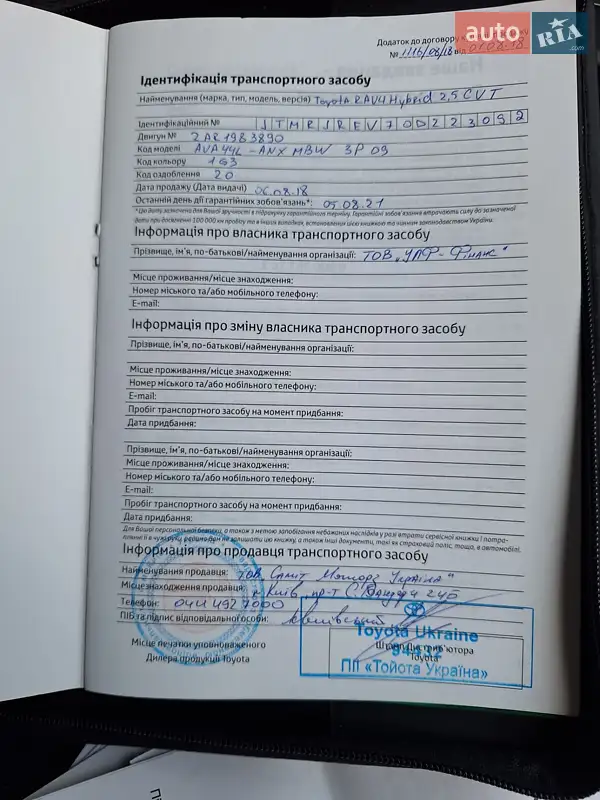 auto RIA .com
Додаток до договору
№ 1116/08/18 від 01.08.18
Ідентифікація транспортного засобу
Найменування (марка, тип, модель, версія) Toyota RAV4 Hybrid 2,5 CVT
Ідентифікаційний № JTMRJREV70D223092
Двигун № 2AR1983890
Код моделі AVA44L-ANXMBW 3P 09
Код кольору 1G3
Код оздоблення 20
Дата продажу (Дата видачі) 06.08.18
Останній день дії гарантійних зобов'язань*: 05.08.21
*Цю дату зазначено для Вашої зручності в підрахунку гарантійного терміну. Гарантійні зобов'язання втрачають силу до зазначеної
дати при досягненні 100 000 км пробігу та в інших випадках, встановлених цією книжкою та чинним законодавством України.
Інформація про власника транспортного засобу
Прізвище, ім'я, по-батькові/найменування організації: ТОВ „УЛФ-Фінанс"
Місце проживання/місце знаходження:
Номер міського та/або мобільного телефону:
E-mail:
Інформація про зміну власника транспортного засобу
Прізвище, ім'я, по-батькові/найменування організації:
Місце проживання/місце знаходження:
Номер міського та/або мобільного телефону:
E-mail:
Пробіг транспортного засобу на момент придбання:
Дата придбання:
Прізвище, ім'я, по-батькові/найменування організації:
Місце проживання/місце знаходження:
Номер міського та/або мобільного телефону:
E-mail:
Пробіг транспортного засобу на момент придбання:
Дата придбання:
Для Вашої персональної безпеки, а також з метою запобігання небажаних наслідків у разі втрати сервісної книжки і потра-
пляння її в чужі руки, радимо Вам не залишати цю книжку, а також інші документи, такі як страховий поліс тощо, в автомобілі.
Інформація про продавця транспортного засобу
Найменування продавця: ТОВ „Саміт Моторз Україна"
Місцезнаходження продавця: м. Київ, пр-т С. Бандери 24б
Телефон: 044 492 7000
ПІБ та підпис відповідальної особи:
Місце печатки уповноваженого
Дилера продукції Toyota
Toyota Ukraine
Штамп Дистриб'ютора
Toyota
ПІІ «Тойота Україна»